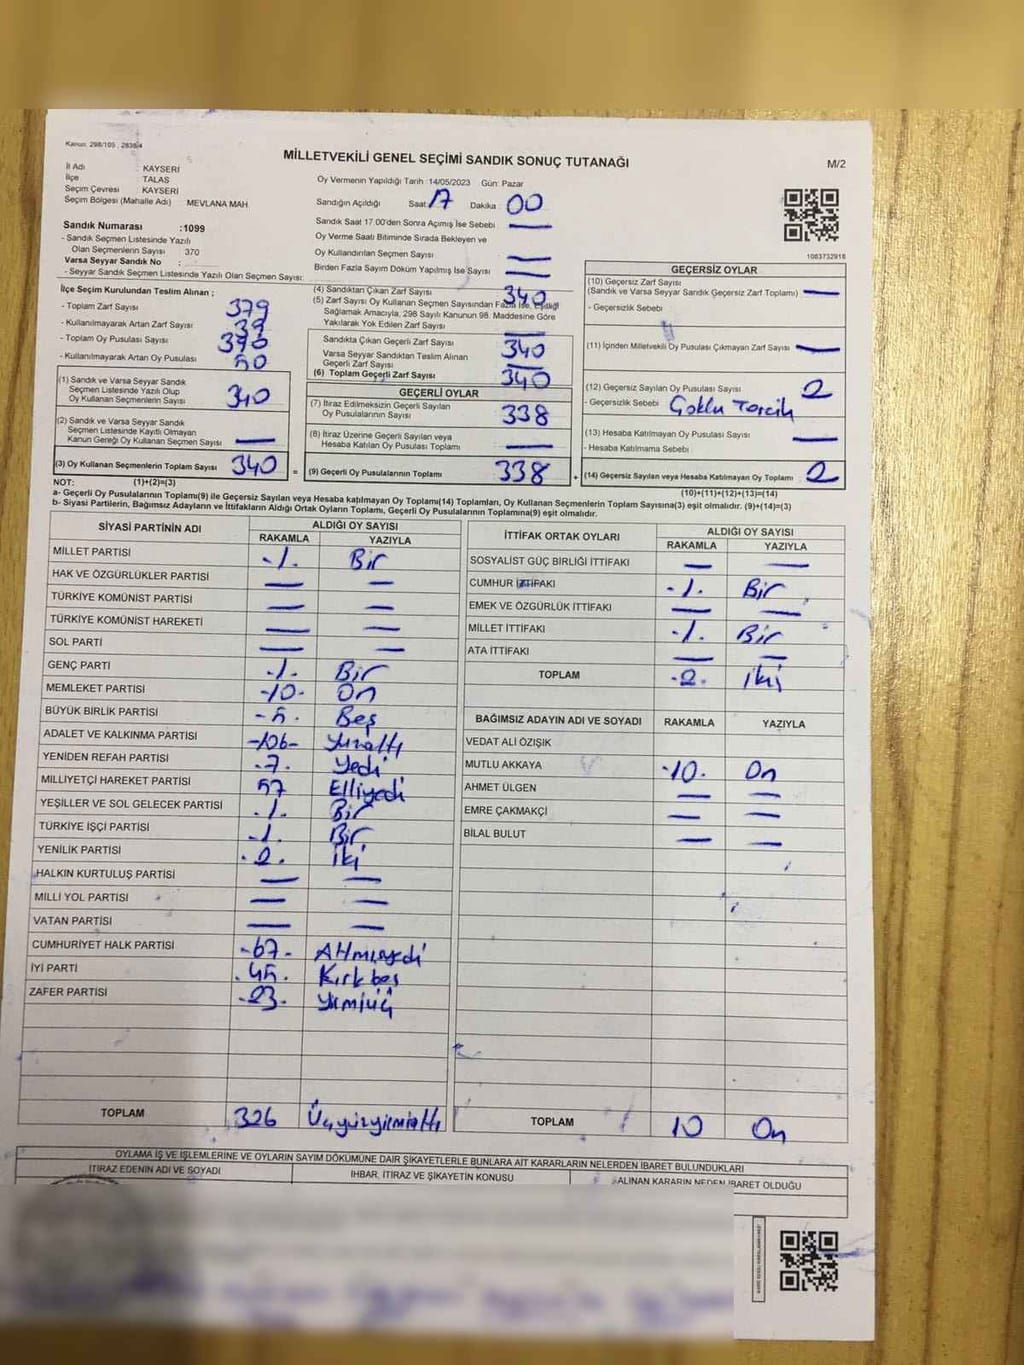 Kanun: 298/105 , 2839/4
MİLLETVEKİLİ GENEL SEÇİMİ SANDIK SONUÇ TUTANAĞI
M/2
İl Adı : KAYSERİ
İlçe : TALAS
Seçim Çevresi : KAYSERİ
Seçim Bölgesi (Mahalle Adı) MEVLANA MAH.
Oy Vermenin Yapıldığı Tarih :14/05/2023 Gün: Pazar
Sandığın Açıldığı Saat: 17 Dakika: 00
Sandık Saat 17.00'den Sonra Açılmış İse Sebebi : —
Oy Verme Saati Bitiminde Sırada Bekleyen ve
Oy Kullandırılan Seçmen Sayısı : —
Birden Fazla Sayım Döküm Yapılmış İse Sayısı : —
1083732918
Sandık Numarası :1099
- Sandık Seçmen Listesinde Yazılı
Olan Seçmenlerin Sayısı : 370
Varsa Seyyar Sandık No :
- Seyyar Sandık Seçmen Listesinde Yazılı Olan Seçmen Sayısı:
İlçe Seçim Kurulundan Teslim Alınan ;
- Toplam Zarf Sayısı : 379
- Kullanılmayarak Artan Zarf Sayısı : 39
- Toplam Oy Pusulası Sayısı : 390
- Kullanılmayarak Artan Oy Pusulası : 50
(1) Sandık ve Varsa Seyyar Sandık
Seçmen Listesinde Yazılı Olup
Oy Kullanan Seçmenlerin Sayısı : 340
(2) Sandık ve Varsa Seyyar Sandık
Seçmen Listesinde Kayıtlı Olmayan
Kanun Gereği Oy Kullanan Seçmen Sayısı : —
(3) Oy Kullanan Seçmenlerin Toplam Sayısı : 340 =
(4) Sandıktan Çıkan Zarf Sayısı : 340
(5) Zarf Sayısı Oy Kullanan Seçmen Sayısından Fazla İse, Eşitliği
Sağlamak Amacıyla, 298 Sayılı Kanunun 98. Maddesine Göre
Yakılarak Yok Edilen Zarf Sayısı : —
Sandıkta Çıkan Geçerli Zarf Sayısı : 340
Varsa Seyyar Sandıktan Teslim Alınan
Geçerli Zarf Sayısı : —
(6) Toplam Geçerli Zarf Sayısı : 340
GEÇERLİ OYLAR
(7) İtiraz Edilmeksizin Geçerli Sayılan
Oy Pusulalarının Sayısı : 338
(8) İtiraz Üzerine Geçerli Sayılan veya
Hesaba Katılan Oy Pusulası Toplamı : —
(9) Geçerli Oy Pusulalarının Toplamı : 338 +
GEÇERSİZ OYLAR
(10) Geçersiz Zarf Sayısı
(Sandık ve Varsa Seyyar Sandık Geçersiz Zarf Toplamı) : —
- Geçersizlik Sebebi :
(11) İçinden Milletvekili Oy Pusulası Çıkmayan Zarf Sayısı : —
(12) Geçersiz Sayılan Oy Pusulası Sayısı : 2
- Geçersizlik Sebebi : Çoklu Tercih
(13) Hesaba Katılmayan Oy Pusulası Sayısı : —
- Hesaba Katılmama Sebebi :
(14) Geçersiz Sayılan veya Hesaba Katılmayan Oy Toplamı : 2
NOT: (1)+(2)=(3) (10)+(11)+(12)+(13)=(14)
a- Geçerli Oy Pusulalarının Toplamı(9) ile Geçersiz Sayılan veya Hesaba katılmayan Oy Toplamı(14) Toplamları, Oy Kullanan Seçmenlerin Toplam Sayısına(3) eşit olmalıdır. (9)+(14)=(3)
b- Siyasi Partilerin, Bağımsız Adayların ve İttifakların Aldığı Ortak Oyların Toplamı, Geçerli Oy Pusulalarının Toplamına(9) eşit olmalıdır.
SİYASİ PARTİNİN ADI ALDIĞI OY SAYISI
RAKAMLA YAZIYLA
MİLLET PARTİSİ -1. Bir
HAK VE ÖZGÜRLÜKLER PARTİSİ — —
TÜRKİYE KOMÜNİST PARTİSİ — —
TÜRKİYE KOMÜNİST HAREKETİ — —
SOL PARTİ — —
GENÇ PARTİ -1. Bir
MEMLEKET PARTİSİ -10- On
BÜYÜK BİRLİK PARTİSİ -5. Beş
ADALET VE KALKINMA PARTİSİ -106- Yüzaltı
YENİDEN REFAH PARTİSİ .7. Yedi
MİLLİYETÇİ HAREKET PARTİSİ 57 Elliyedi
YEŞİLLER VE SOL GELECEK PARTİSİ .1. Bir
TÜRKİYE İŞÇİ PARTİSİ -1. Bir
YENİLİK PARTİSİ .2. İki
HALKIN KURTULUŞ PARTİSİ — —
MİLLİ YOL PARTİSİ — —
VATAN PARTİSİ — —
CUMHURİYET HALK PARTİSİ -67- Altmışyedi
İYİ PARTİ .45. Kırkbeş
ZAFER PARTİSİ -23. Yirmiüç
TOPLAM 326 Üçyüzyirmialtı
İTTİFAK ORTAK OYLARI ALDIĞI OY SAYISI
RAKAMLA YAZIYLA
SOSYALİST GÜÇ BİRLİĞİ İTTİFAKI — —
CUMHUR İTTİFAKI -1. Bir
EMEK VE ÖZGÜRLÜK İTTİFAKI — —
MİLLET İTTİFAKI -1. Bir
ATA İTTİFAKI — —
TOPLAM -2. iki
BAĞIMSIZ ADAYIN ADI VE SOYADI RAKAMLA YAZIYLA
VEDAT ALİ ÖZIŞIK
MUTLU AKKAYA -10. On
AHMET ÜLGEN — —
EMRE ÇAKMAKÇİ — —
BİLAL BULUT — —
TOPLAM 10 On
OYLAMA İŞ VE İŞLEMLERİNE VE OYLARIN SAYIM DÖKÜMÜNE DAİR ŞİKAYETLERLE BUNLARA AİT KARARLARIN NELERDEN İBARET BULUNDUKLARI
İTİRAZ EDENİN ADI VE SOYADI İHBAR, İTİRAZ VE ŞİKAYETİN KONUSU ALINAN KARARIN NEDEN İBARET OLDUĞU